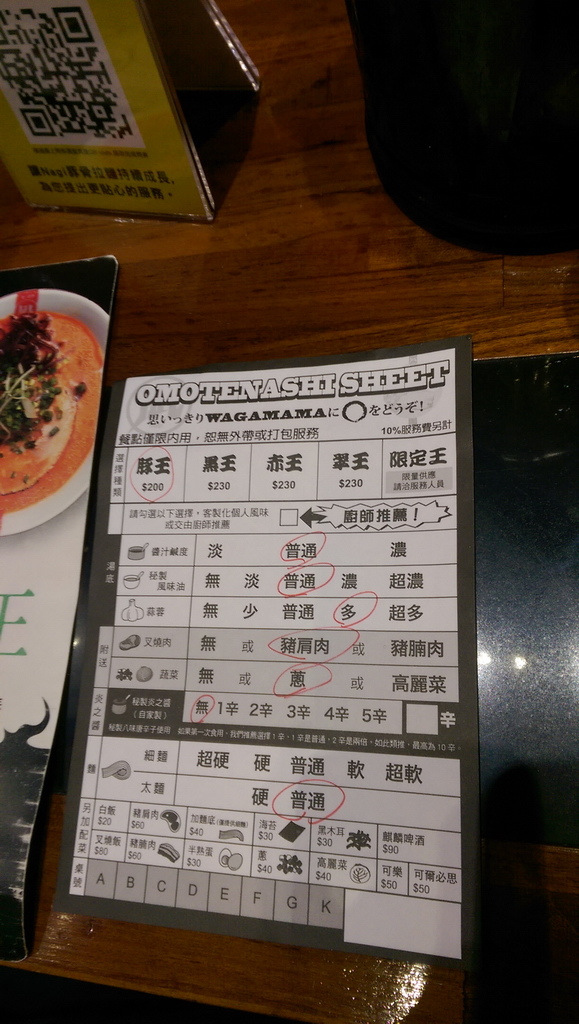 讓Nagi豚骨拉麵持續成長,
為您提出更貼心的服務。
OMOTENASHI SHEET
思いっきりWAGAMAMAに◯をどうぞ!
餐點僅限內用，恕無外帶或打包服務 10%服務費另計
選擇種類 豚王 $200 黒王 $230 赤王 $230 翠王 $230 限定王 限量供應 請洽服務人員
請勾選以下選擇，客製化個人風味
或交由廚師推薦 廚師推薦!
湯底
醬汁鹹度 淡 普通 濃
秘製風味油 無 淡 普通 濃 超濃
蒜蓉 無 少 普通 多 超多
附送
叉燒肉 無 或 豬肩肉 或 豬腩肉
蔬菜 無 或 蔥 或 高麗菜
炎之醬
秘製炎之醬(自家製) 無 1辛 2辛 3辛 4辛 5辛 辛
秘製八味唐辛子使用 如果第一次食用，我們推薦選擇1辛，1辛是普通，2辛是兩倍，如此類推，最高為10辛。
麵
細麵 超硬 硬 普通 軟 超軟
太麵 硬 普通
另加配菜
白飯 $20 豬肩肉 $60 加麵底 $40 海苔 $30 黑木耳 $30 麒麟啤酒 $90
叉燒飯 $80 豬腩肉 $60 半熟蛋 $30 蔥 $40 高麗菜 $40 可樂 $50 可爾必思 $50
桌號 A B C D E F G K
王